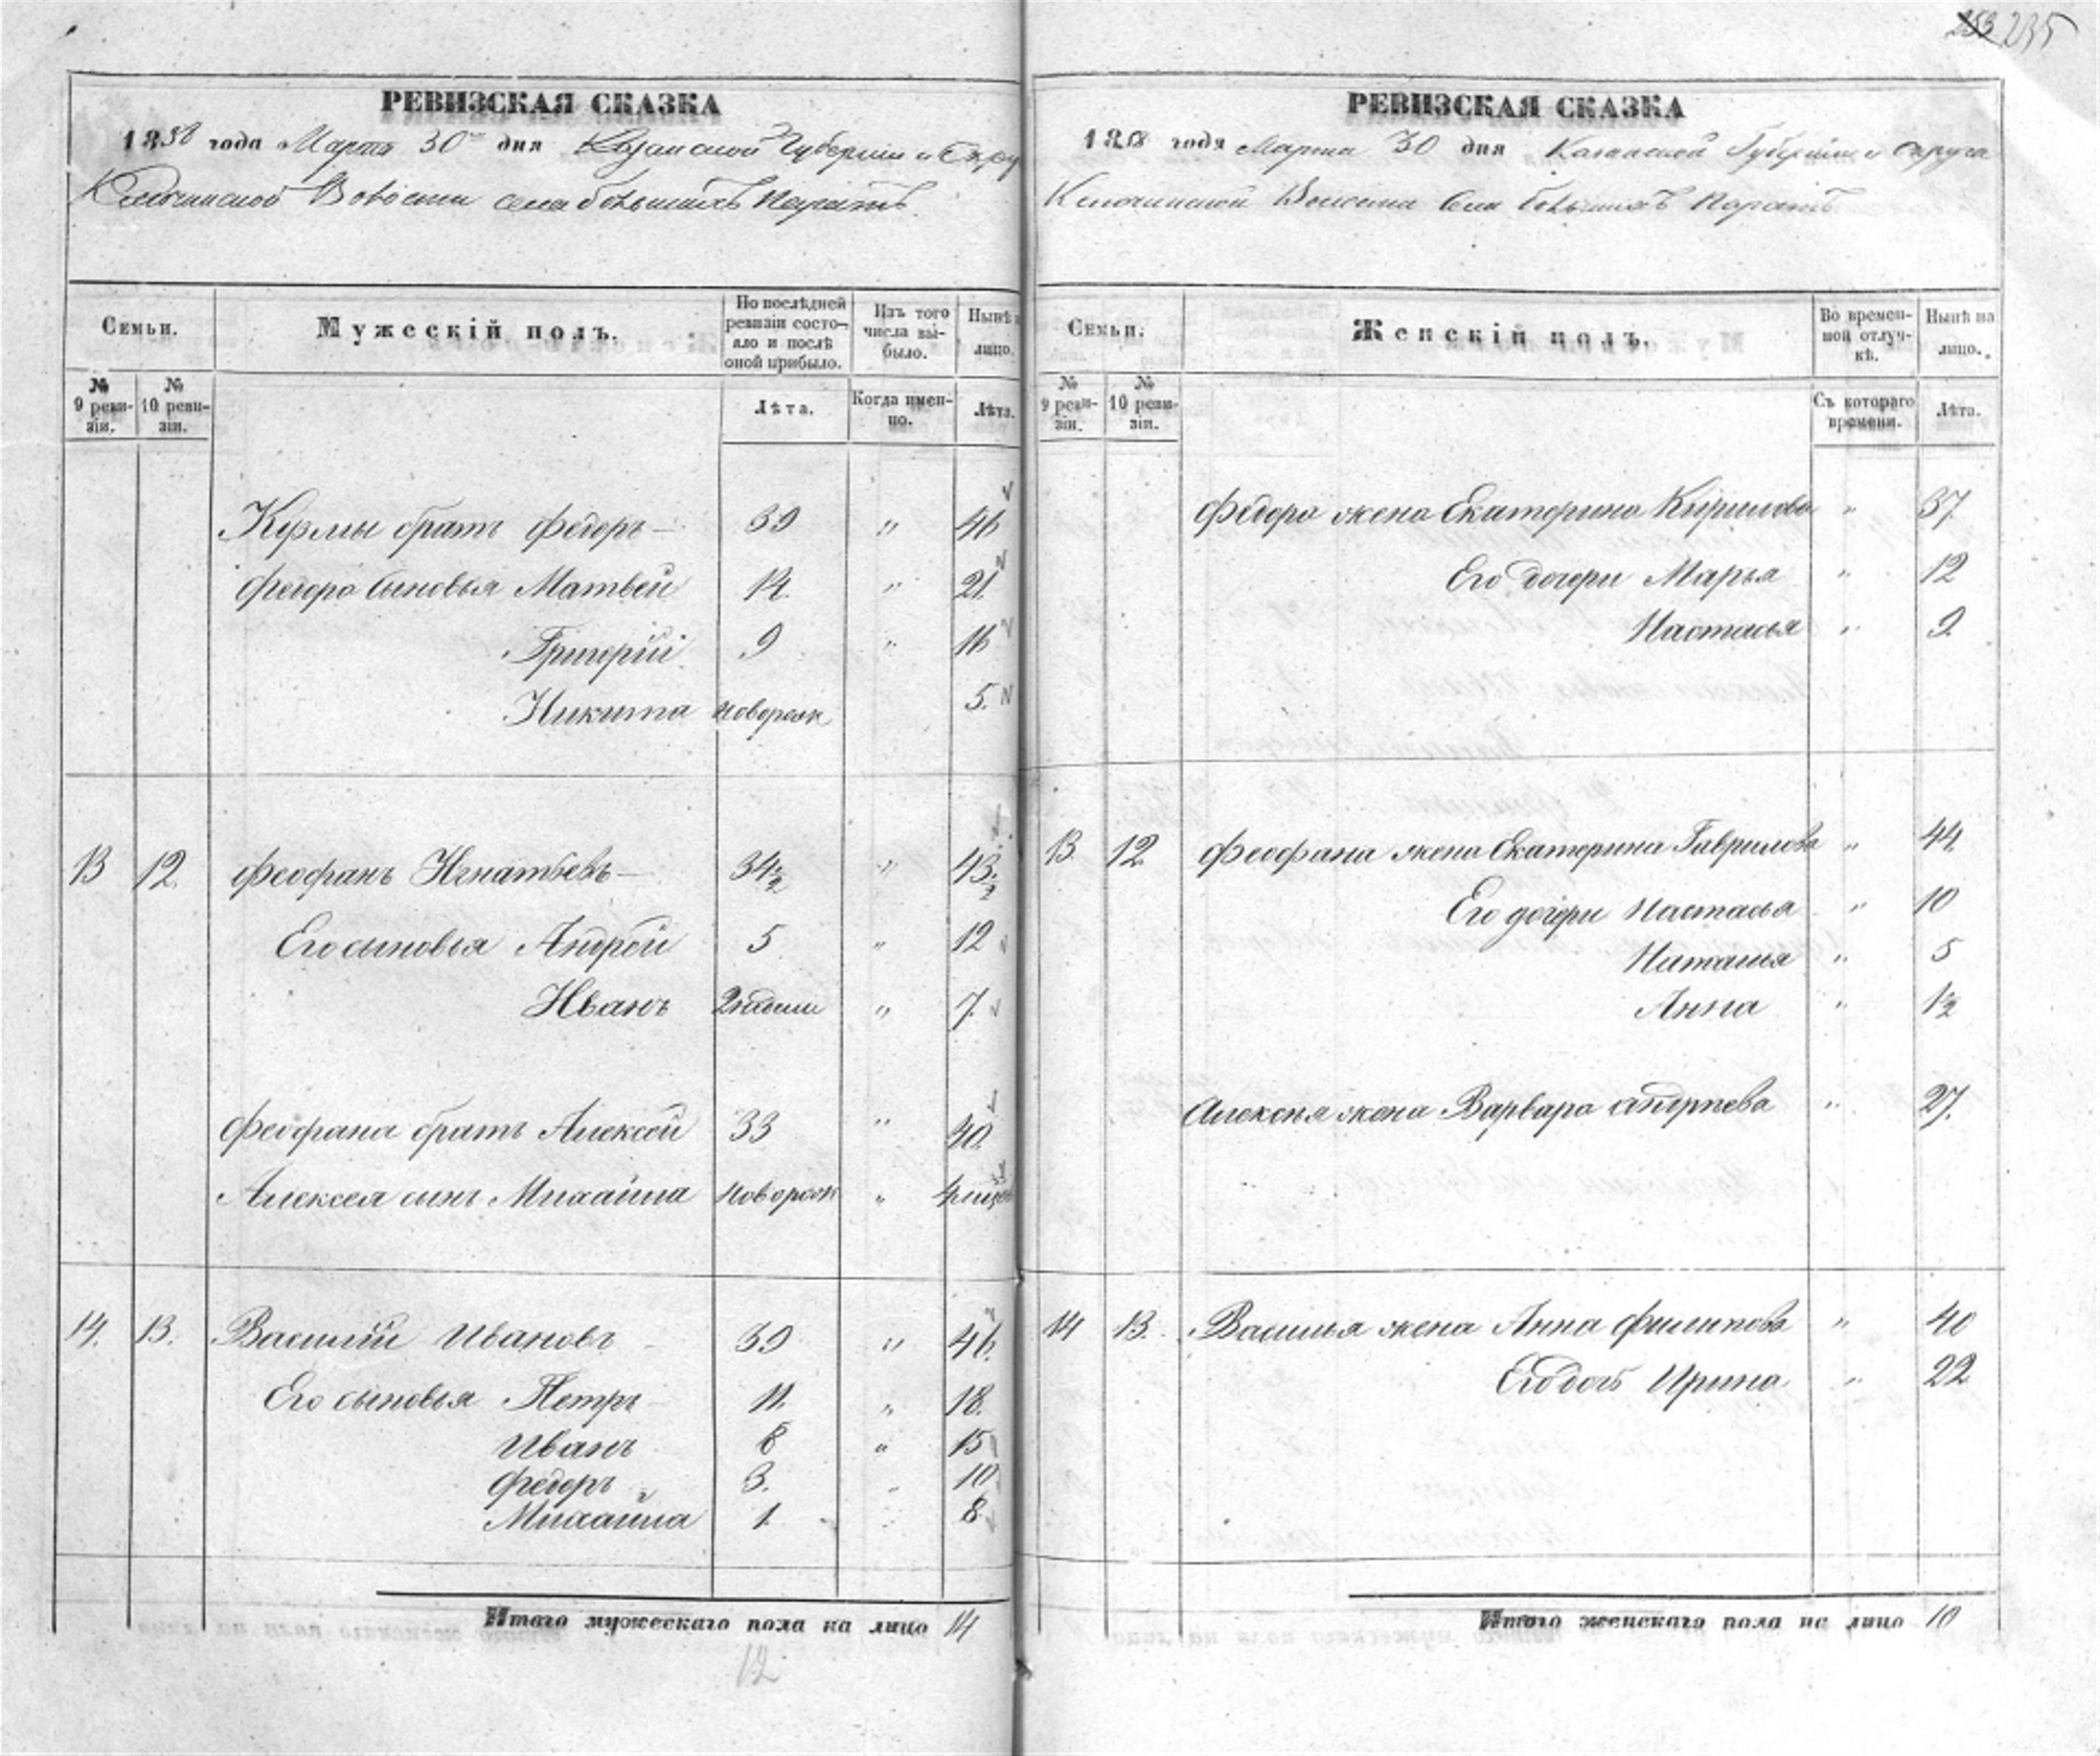 235
РЕВИЗСКАЯ СКАЗКА
1858 года Марта 30 дня Казанской Губернии и Окру
Ключинской Волости села большихъ Паратъ
Семьи.
Мужескій полъ.
По послѣдней ревизіи состояло и послѣ оной прибыло.
Изъ того числа выбыло.
Нынѣ на лицо.
№ 9 ревизіи.
№ 10 ревизіи.
Лѣта.
Когда именно.
Лѣта.
Кузмы братъ Федоръ 39 " 46
Федора сыновья Матвей 14. " 21.
Григорій 9 " 16
Никита новорож 5.
13 12. Феофанъ Игнатьевъ 34½ " 43½
Его сыновья Андрей 5 " 12
Иванъ 2 недели " 7.
Феофана братъ Алексей 33 " 40.
Алексея сынъ Михайла новорож "
14. 13. Василий Ивановъ 39 " 46.
Его сыновья Петръ 11. " 18.
Иванъ 8 " 15
Федоръ 3. " 10
Михайла 1 " 8.
Итого мужескаго пола на лицо 14
12
РЕВИЗСКАЯ СКАЗКА
1858 года Марта 30 дня Казанской Губерніи и Округа
Ключинской Волости села большихъ Паратъ
Семьи.
Женскій полъ.
Во временной отлучкѣ.
Нынѣ на лицо.
№ 9 ревизіи.
№ 10 ревизіи.
Съ котораго времени.
Лѣта.
Федора жена Екатерина Кирилова " 37.
Его дочери Марья " 12
Настасья " 9.
13 12. Феофана жена Екатерина Гаврилова " 44.
Его дочери Настасья " 10
Наталья " 5
Анна " ½
Алексѣя жена Варвара Андрѣева " 27.
14 13. Василья жена Анна Филипова " 40
Его дочь Ирина " 22
Итого женскаго пола на лицо 10